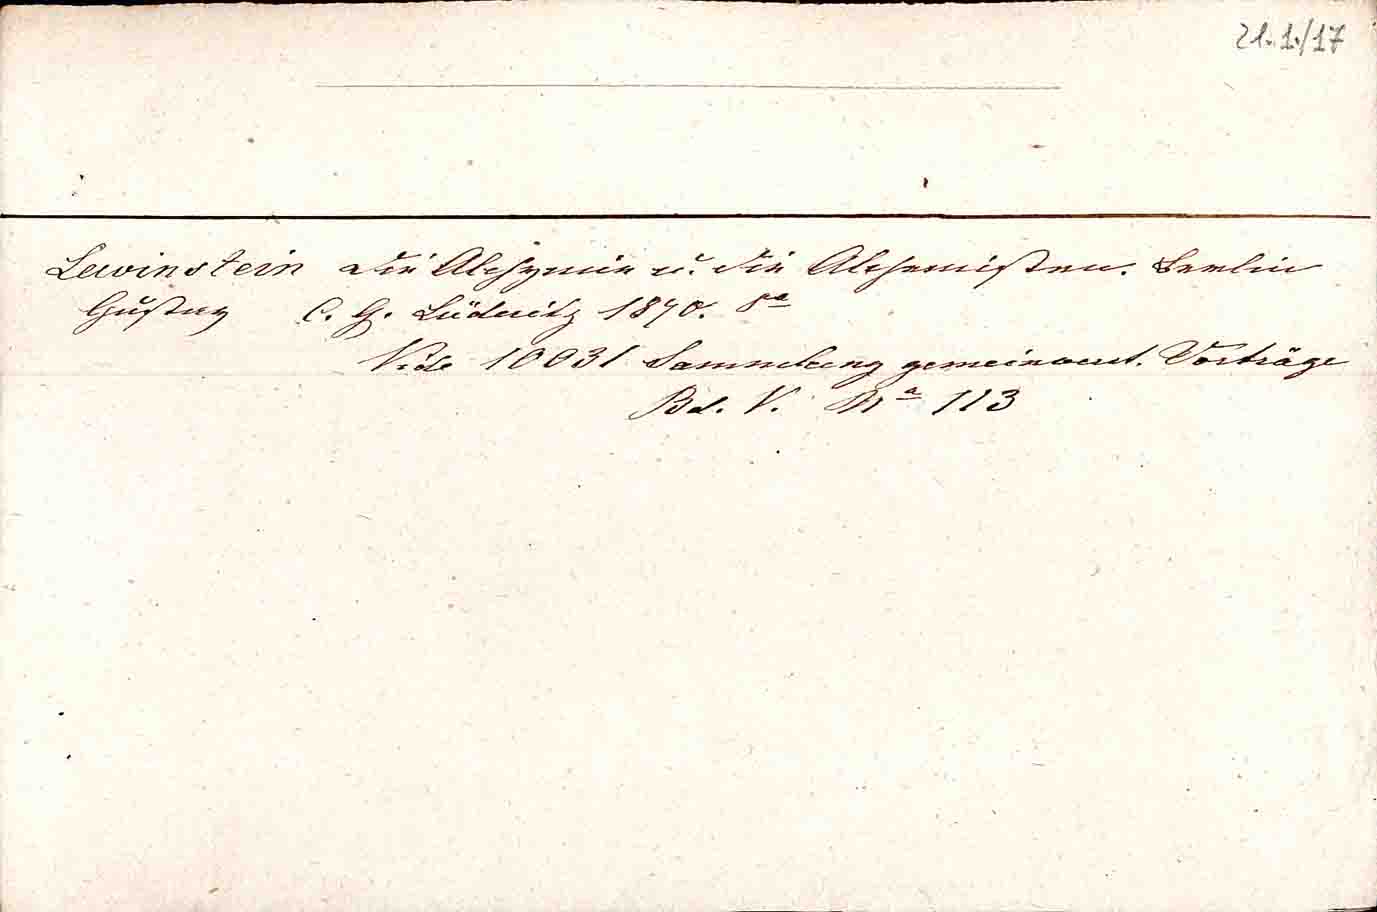 21.1./17
Lewinstein Die Alchymie u. die Alchemisten. Berlin
Gustav C. G. Lüderitz 1870. 8°
Vide 10031 Sammlung gemeinverst. Vorträge
Bd. V. No 113